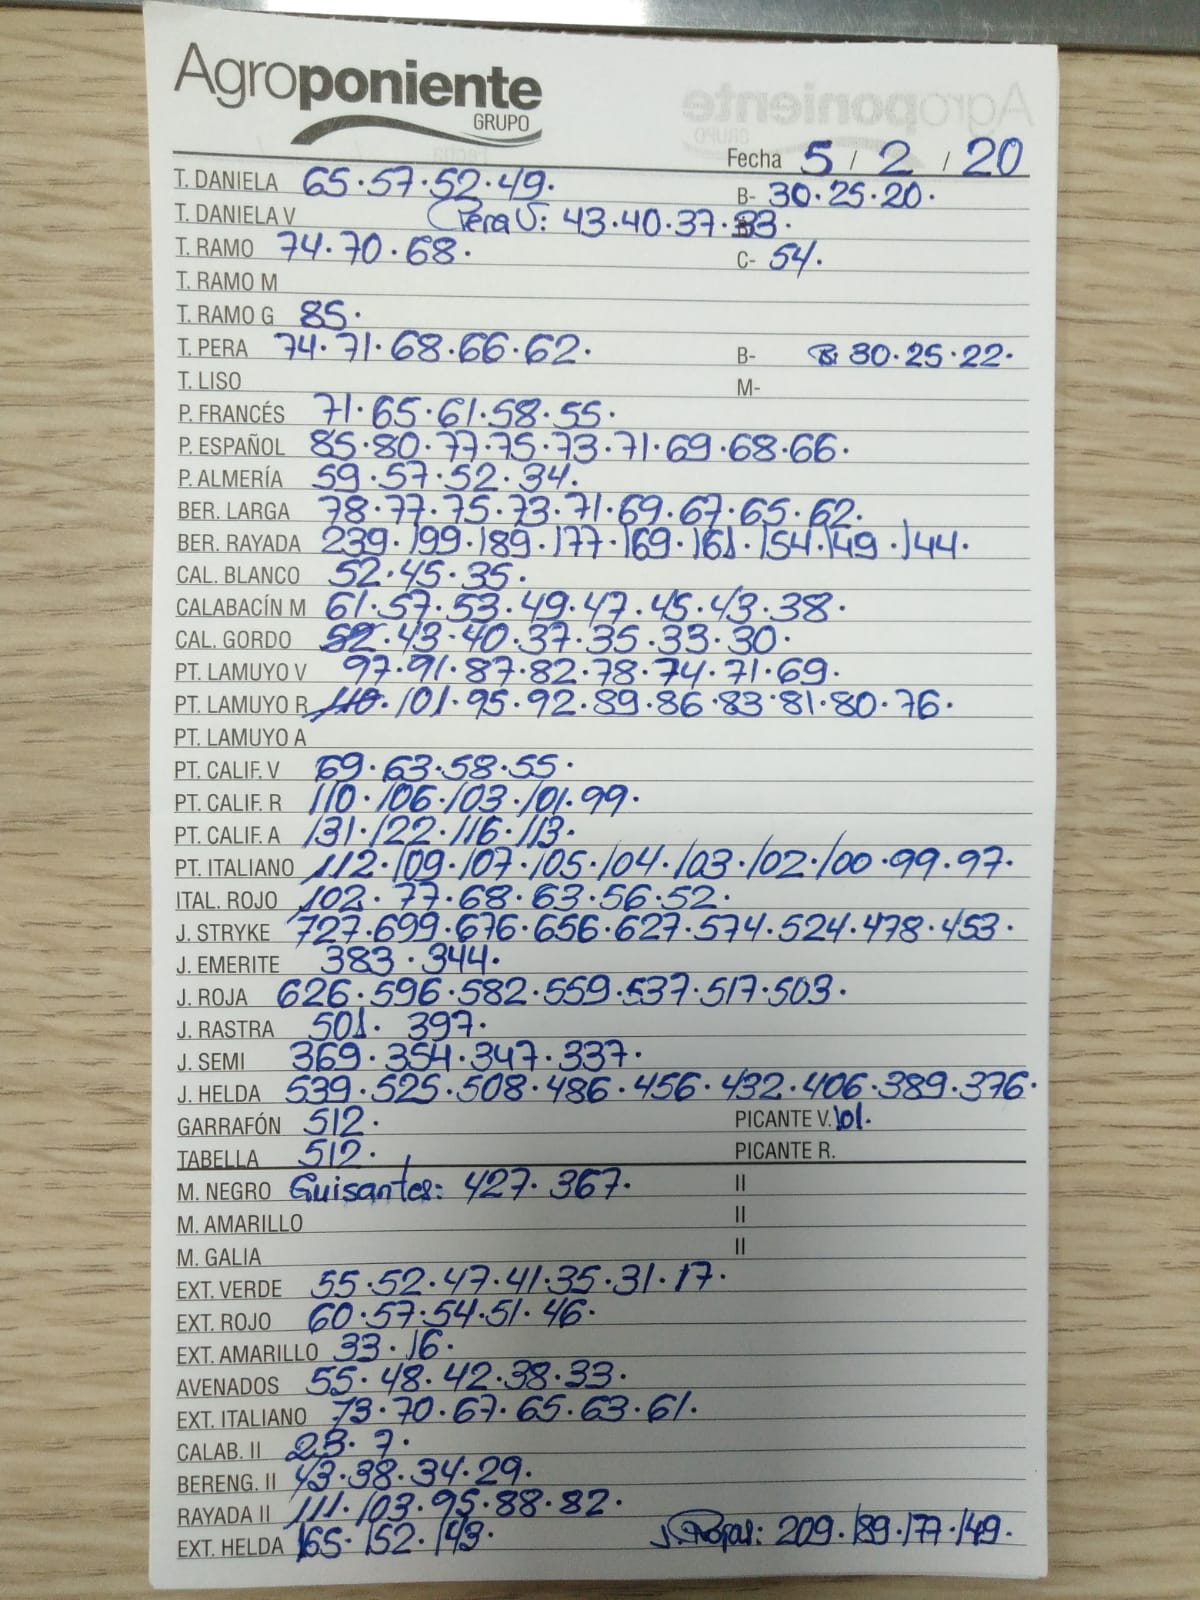 Agroponiente
GRUPO
Fecha 5 / 2 / 20
T. DANIELA 65·57·52·49· B- 30·25·20·
T. DANIELA V Pera V: 43·40·37·33·
T. RAMO 74·70·68· C- 54·
T. RAMO M
T. RAMO G 85·
T. PERA 74·71·68·66·62· B- 30·25·22·
T. LISO M-
P. FRANCÉS 71·65·61·58·55·
P. ESPAÑOL 85·80·77·75·73·71·69·68·66·
P. ALMERÍA 59·57·52·34·
BER. LARGA 78·77·75·73·71·69·67·65·62·
BER. RAYADA 239·199·189·177·169·161·154·149·144·
CAL. BLANCO 52·45·35·
CALABACÍN M 61·57·53·49·47·45·43·38·
CAL. GORDO 52·43·40·37·35·33·30·
PT. LAMUYO V 97·91·87·82·78·74·71·69·
PT. LAMUYO R 110·101·95·92·89·86·83·81·80·76·
PT. LAMUYO A
PT. CALIF. V 69·63·58·55·
PT. CALIF. R 110·106·103·101·99·
PT. CALIF. A 131·122·116·113·
PT. ITALIANO 112·109·107·105·104·103·102·100·99·97·
ITAL. ROJO 102·77·68·63·56·52·
J. STRYKE 727·699·676·656·627·574·524·478·453·
J. EMERITE 383·344·
J. ROJA 626·596·582·559·537·517·503·
J. RASTRA 501· 397·
J. SEMI 369·354·347·337·
J. HELDA 539·525·508·486·456·432·406·389·376·
GARRAFÓN 512· PICANTE V. 101·
TABELLA 512· PICANTE R.
M. NEGRO Guisantes: 427·367· II
M. AMARILLO II
M. GALIA II
EXT. VERDE 55·52·47·41·35·31·17·
EXT. ROJO 60·57·54·51·46·
EXT. AMARILLO 33·16·
AVENADOS 55·48·42·38·33·
EXT. ITALIANO 73·70·67·65·63·61·
CALAB. II 23·7·
BERENG. II 43·38·34·29·
RAYADA II 111·103·95·88·82·
EXT. HELDA 165·152·143· J. Rojas: 209·189·177·149·